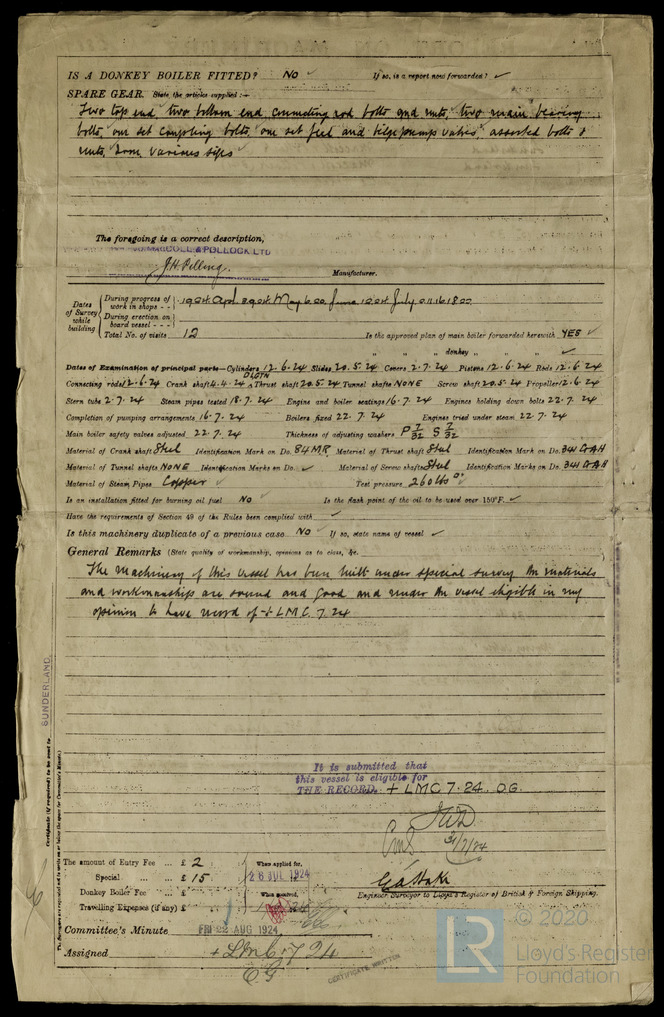 IS A DONKEY BOILER FITTED? No ✓ If so, is a report now forwarded? ✓
SPARE GEAR. State the articles supplied:—
Two top end, two bottom end, connecting rod bolts and nuts, two main bearing
bolts, one set coupling bolts, one set feed and bilge pump valves, assorted bolts &
nuts, Iron, various sizes
The foregoing is a correct description,
MACCOLL & POLLOCK LTD
J.H. Pilling. Manufacturer.
Dates of Survey while building
During progress of work in shops - -
1924 Apl May June July
During erection on board vessel - - -
Total No. of visits 12 Is the approved plan of main boiler forwarded herewith YES ✓
" " " donkey " " ✓
Dates of Examination of principal parts—Cylinders 12.6.24 Slides 20.5.24 Covers 2.7.24 Pistons 12.6.24 Rods 12.6.24
Connecting rods 12.6.24 Crank shaft 4.4.24 Thrust shaft 20.5.24 Tunnel shafts NONE Screw shaft 20.5.24 Propeller 12.6.24
Stern tube 2.7.24 Steam pipes tested 18.7.24 Engine and boiler seatings 16.7.24 Engines holding down bolts 22.7.24
Completion of pumping arrangements 16.7.24 Boilers fixed 22.7.24 Engines tried under steam 22.7.24
Main boiler safety valves adjusted 22.7.24 Thickness of adjusting washers P 7/32 S 7/32
Material of Crank shaft Steel Identification Mark on Do. 84MR Material of Thrust shaft Steel Identification Mark on Do. 341 GAH
Material of Tunnel shafts NONE Identification Marks on Do. ✓ Material of Screw shafts Steel Identification Marks on Do. 341 GAH
Material of Steam Pipes Copper ✓ Test pressure 260 lbs
Is an installation fitted for burning oil fuel No ✓ Is the flash point of the oil to be used over 150°F. ✓
Have the requirements of Section 49 of the Rules been complied with ✓
Is this machinery duplicate of a previous case No ✓ If so, state name of vessel ✓
General Remarks (State quality of workmanship, opinions as to class, &c.
The machinery of this vessel has been built under special survey the materials
and workmanships are sound and good and render the vessel eligible in my
opinion to have record of + LMC. 7.24
SUNDERLAND.
Certificate (if required) to be sent to
The Surveyors are requested not to write on or below the space for Committee's Minute.
It is submitted that
this vessel is eligible for
THE RECORD. + LMC 7.24. OG.
31/7/24
The amount of Entry Fee ... £ 2 When applied for,
Special ... £ 15 28 JUL 1924
Donkey Boiler Fee ... £ When received,
Travelling Expenses (if any) £
Engineer Surveyor to Lloyd's Register of British & Foreign Shipping.
Committee's Minute FRI 22 AUG 1924
Assigned + LMC 7 24
CERTIFICATE WRITTEN
LR
© 2020
Lloyd's Register
Foundation